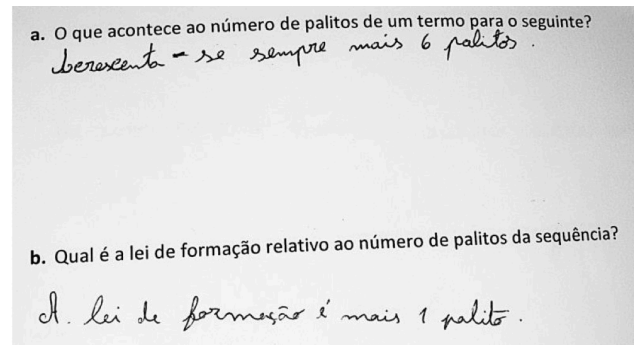 a. O que acontece ao número de palitos de um termo para o seguinte?
Cerescenta - se sempre mais 6 palitos.
b. Qual é a lei de formação relativo ao número de palitos da sequência?
A. lei de formação é mais 1 palito.